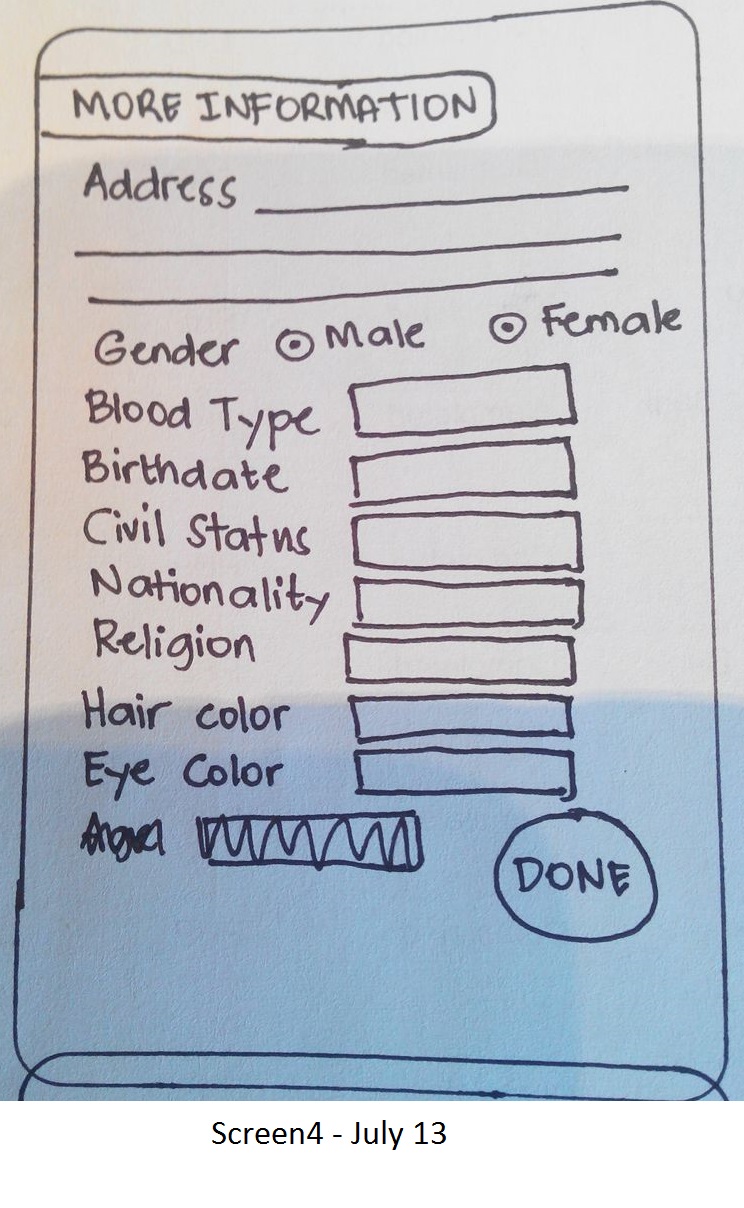 MORE INFORMATION
Address
Gender Male Female
Blood Type
Birthdate
Civil Status
Nationality
Religion
Hair color
Eye Color
DONE
Screen4 - July 13